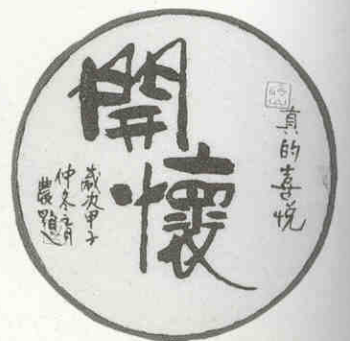 真的喜悦
開懷
歲次甲子
仲冬之月
農題